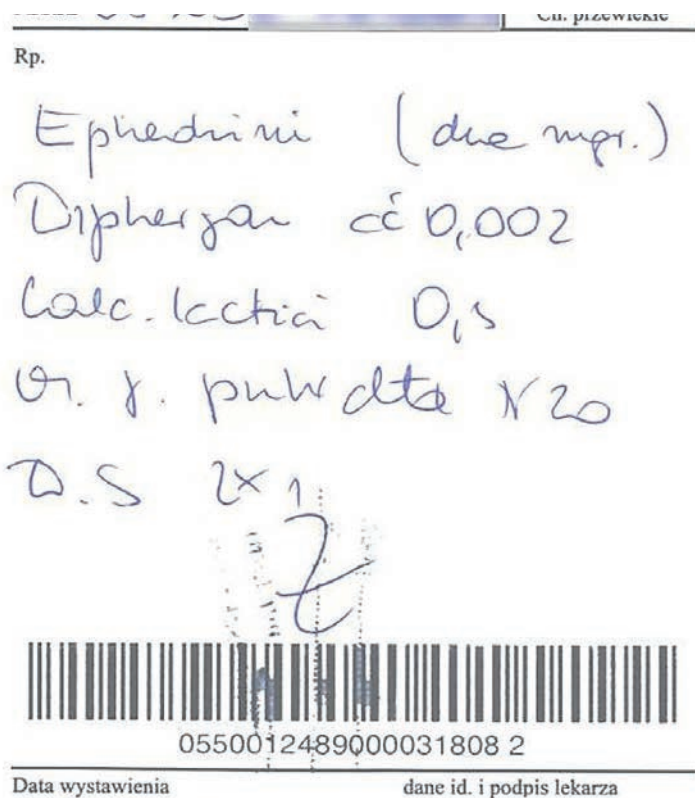 Ch. przewlekłe
Rp.
Ephedrini (dwa mgr.)
Diphergan āā 0,002
Calc. lactici 0,5
M. f. pulv dtd N 20
D.S 2x1
0550012489000031808 2
Data wystawienia dane id. i podpis lekarza